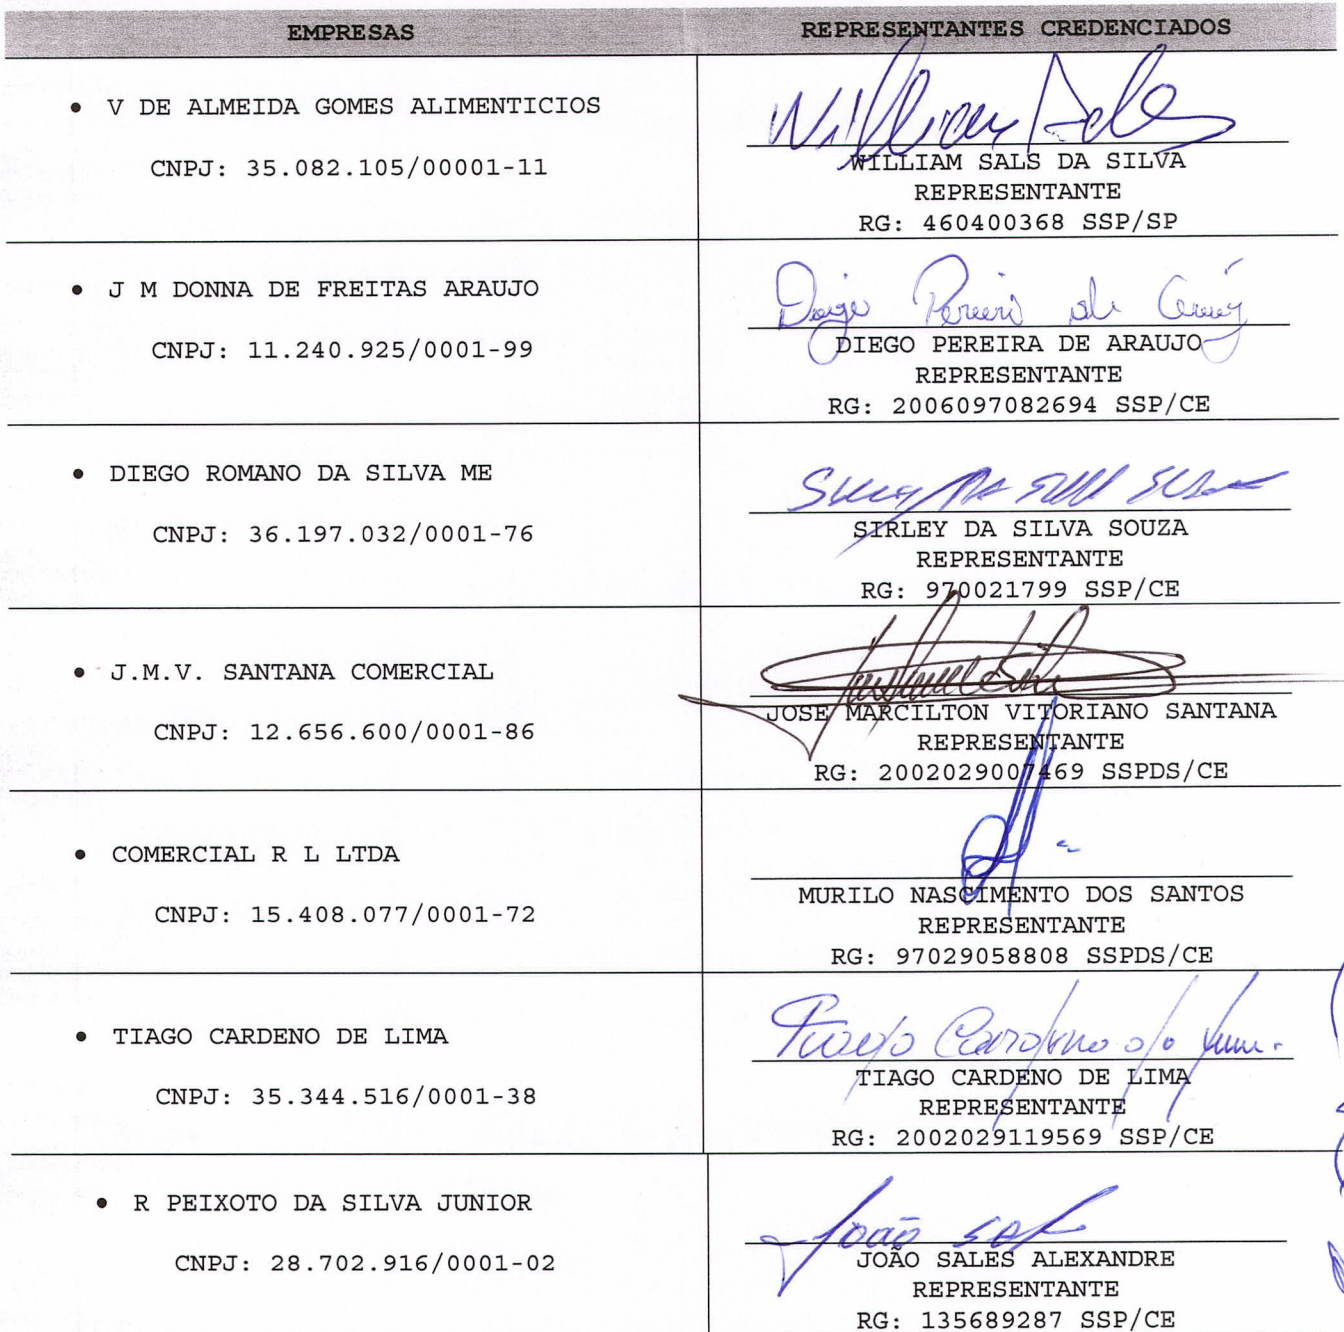 EMPRESAS
REPRESENTANTES CREDENCIADOS
• V DE ALMEIDA GOMES ALIMENTICIOS
CNPJ: 35.082.105/00001-11
William Sals
WILLIAM SALS DA SILVA
REPRESENTANTE
RG: 460400368 SSP/SP
• J M DONNA DE FREITAS ARAUJO
CNPJ: 11.240.925/0001-99
DIEGO PEREIRA DE ARAUJO
REPRESENTANTE
RG: 2006097082694 SSP/CE
• DIEGO ROMANO DA SILVA ME
CNPJ: 36.197.032/0001-76
SIRLEY DA SILVA SOUZA
REPRESENTANTE
RG: 970021799 SSP/CE
• J.M.V. SANTANA COMERCIAL
CNPJ: 12.656.600/0001-86
JOSE MARCILTON VITORIANO SANTANA
REPRESENTANTE
RG: 2002029007469 SSPDS/CE
• COMERCIAL R L LTDA
CNPJ: 15.408.077/0001-72
MURILO NASCIMENTO DOS SANTOS
REPRESENTANTE
RG: 97029058808 SSPDS/CE
• TIAGO CARDENO DE LIMA
CNPJ: 35.344.516/0001-38
Tiago Cardeno de Lima
TIAGO CARDENO DE LIMA
REPRESENTANTE
RG: 2002029119569 SSP/CE
• R PEIXOTO DA SILVA JUNIOR
CNPJ: 28.702.916/0001-02
João
JOÃO SALES ALEXANDRE
REPRESENTANTE
RG: 135689287 SSP/CE